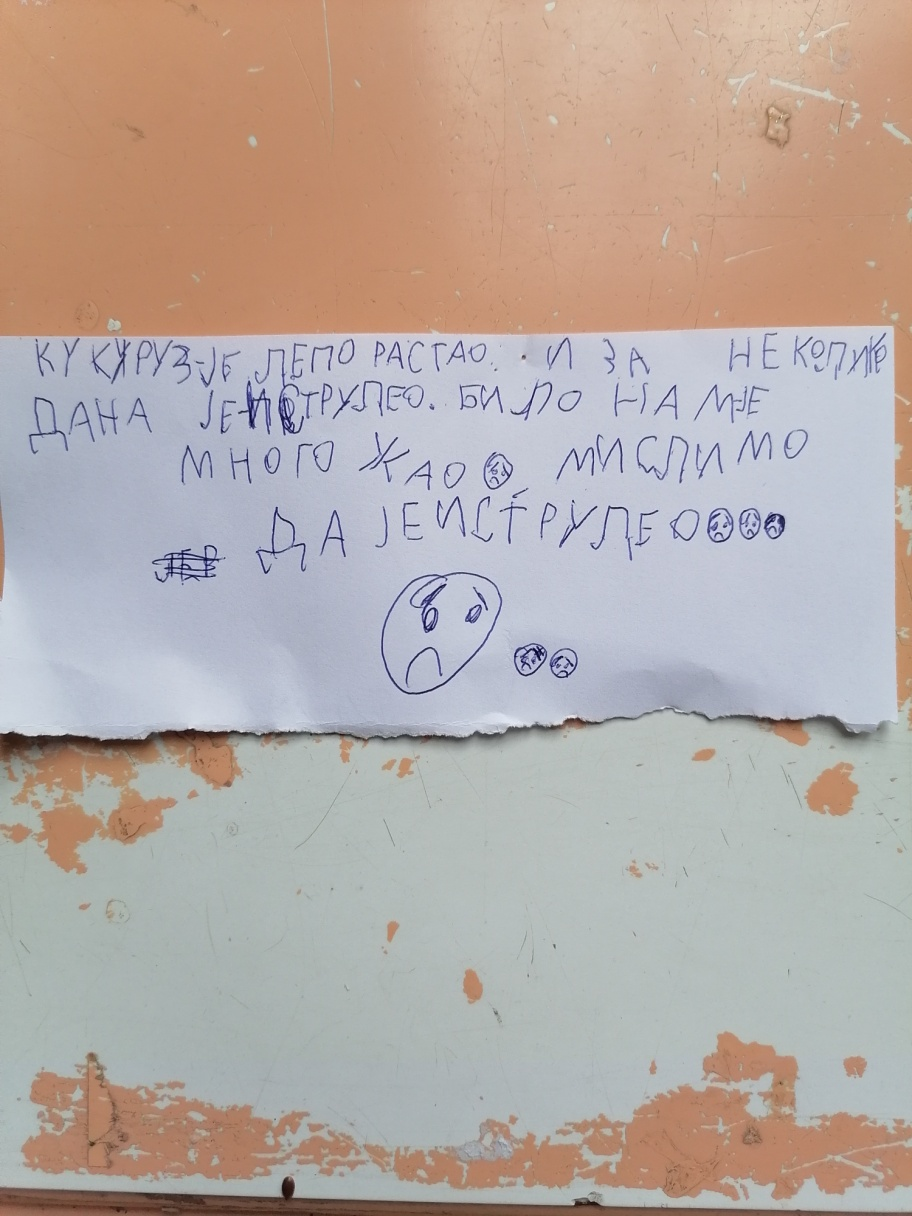 КУКУРУЗ-ЈЕ ЛЕПО РАСТАО. И ЗА НЕКОЛИКО
ДАНА ЈЕ-ИСТРУЛЕО. БИЛО НАМ-ЈЕ
МНОГО ЖАО МИСЛИМО
ДА ЈЕИСТРУЛЕО